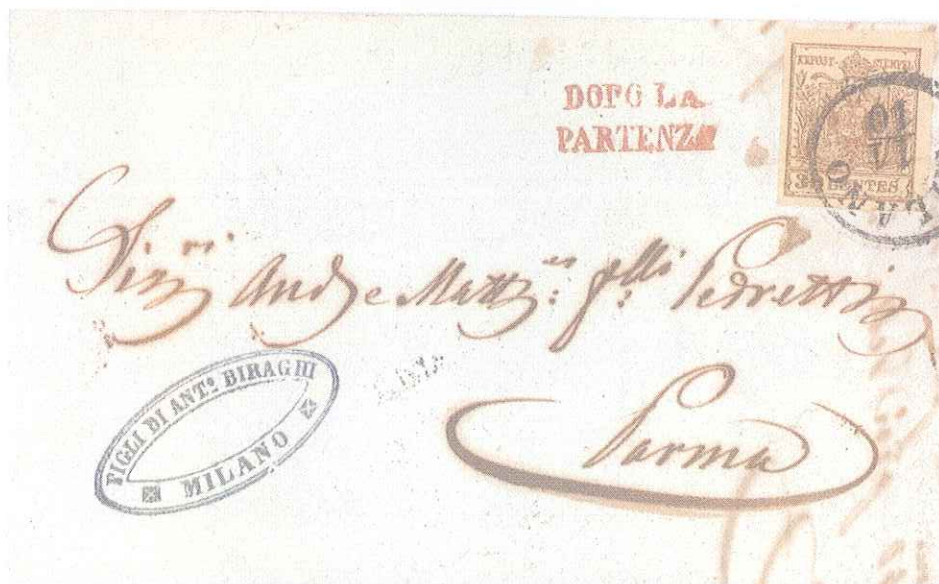 DOPO LA
PARTENZA
KKPOST-STEMPEL
30 CENTES
10
VI
MILANO
Sigri And e Mattio flli Pedretti
FIGLI DI ANTO. BIRAGHI
MILANO
Parma